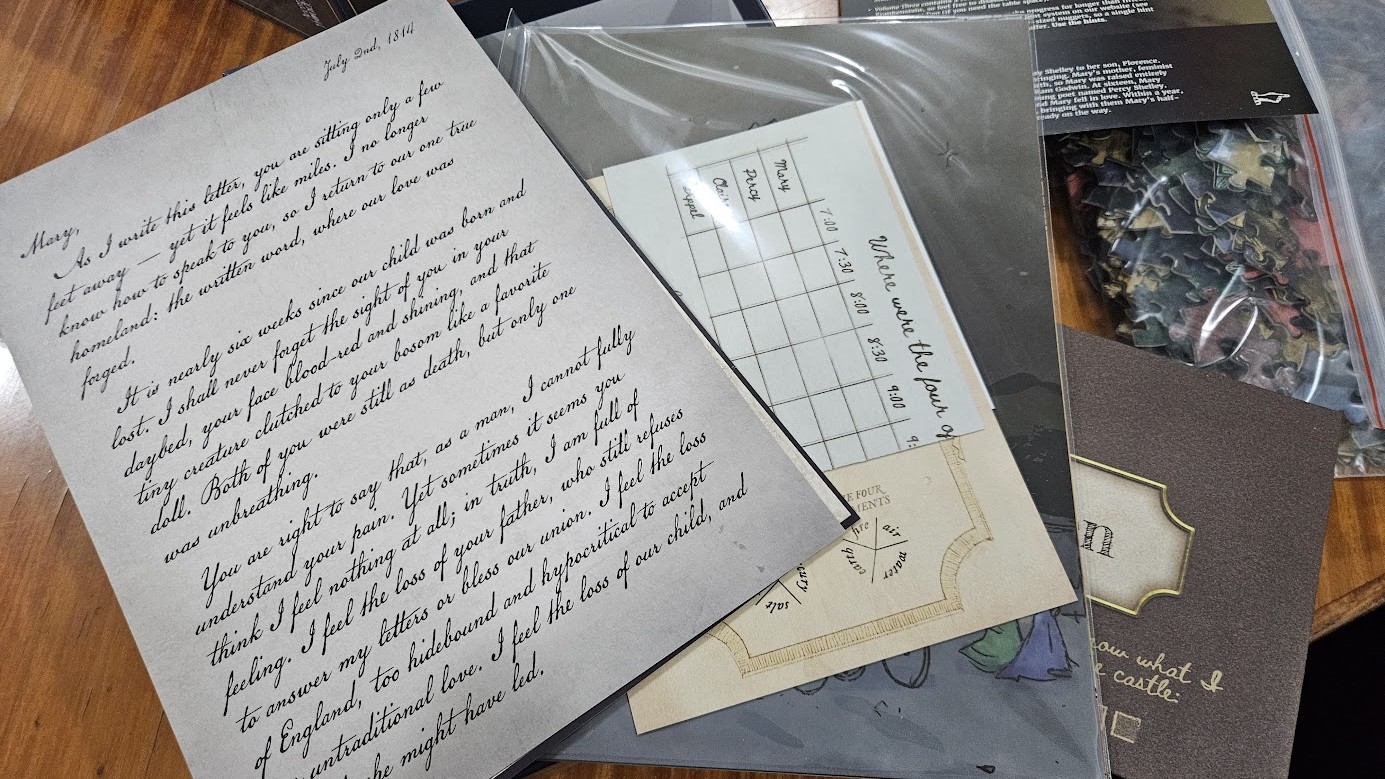 July 2nd, 1814
Mary,
As I write this letter, you are sitting only a few
feet away — yet it feels like miles. I no longer
know how to speak to you, so I return to our one true
homeland: the written word, where our love was
forged.
It is nearly six weeks since our child was born and
lost. I shall never forget the sight of you in your
daybed, your face blood-red and shining, and that
tiny creature clutched to your bosom like a favorite
doll. Both of you were still as death, but only one
was unbreathing.
You are right to say that, as a man, I cannot fully
understand your pain. Yet sometimes it seems you
think I feel nothing at all; in truth, I am full of
feeling. I feel the loss of your father, who still refuses
to answer my letters or bless our union. I feel the loss
of England, too hidebound and hypocritical to accept
untraditional love. I feel the loss of our child, and
he might have led.
Where were the four
7:00 7:30 8:00 8:30 9:00 9:
Mary
Percy
Clai
ppel
E FOUR
MENTS
fire
air
water
earth
salt
Volume Three contains
Frankenstein, so feel free to
you need the table space).
system on our website (see
sized nuggets, so a single hint
Use the hints.
y Shelley to her son, Florence.
inging. Mary's mother, feminist
th, so Mary was raised entirely
am Godwin. At sixteen, Mary
ung poet named Percy Shelley.
d Mary fell in love. Within a year,
bringing with them Mary's half-
eady on the way.
n
ow what I
castle: